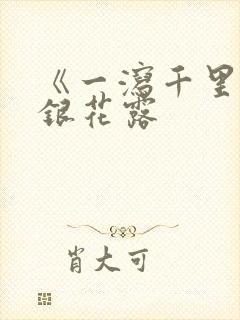 《一瀉千里
銀花露
肖大可